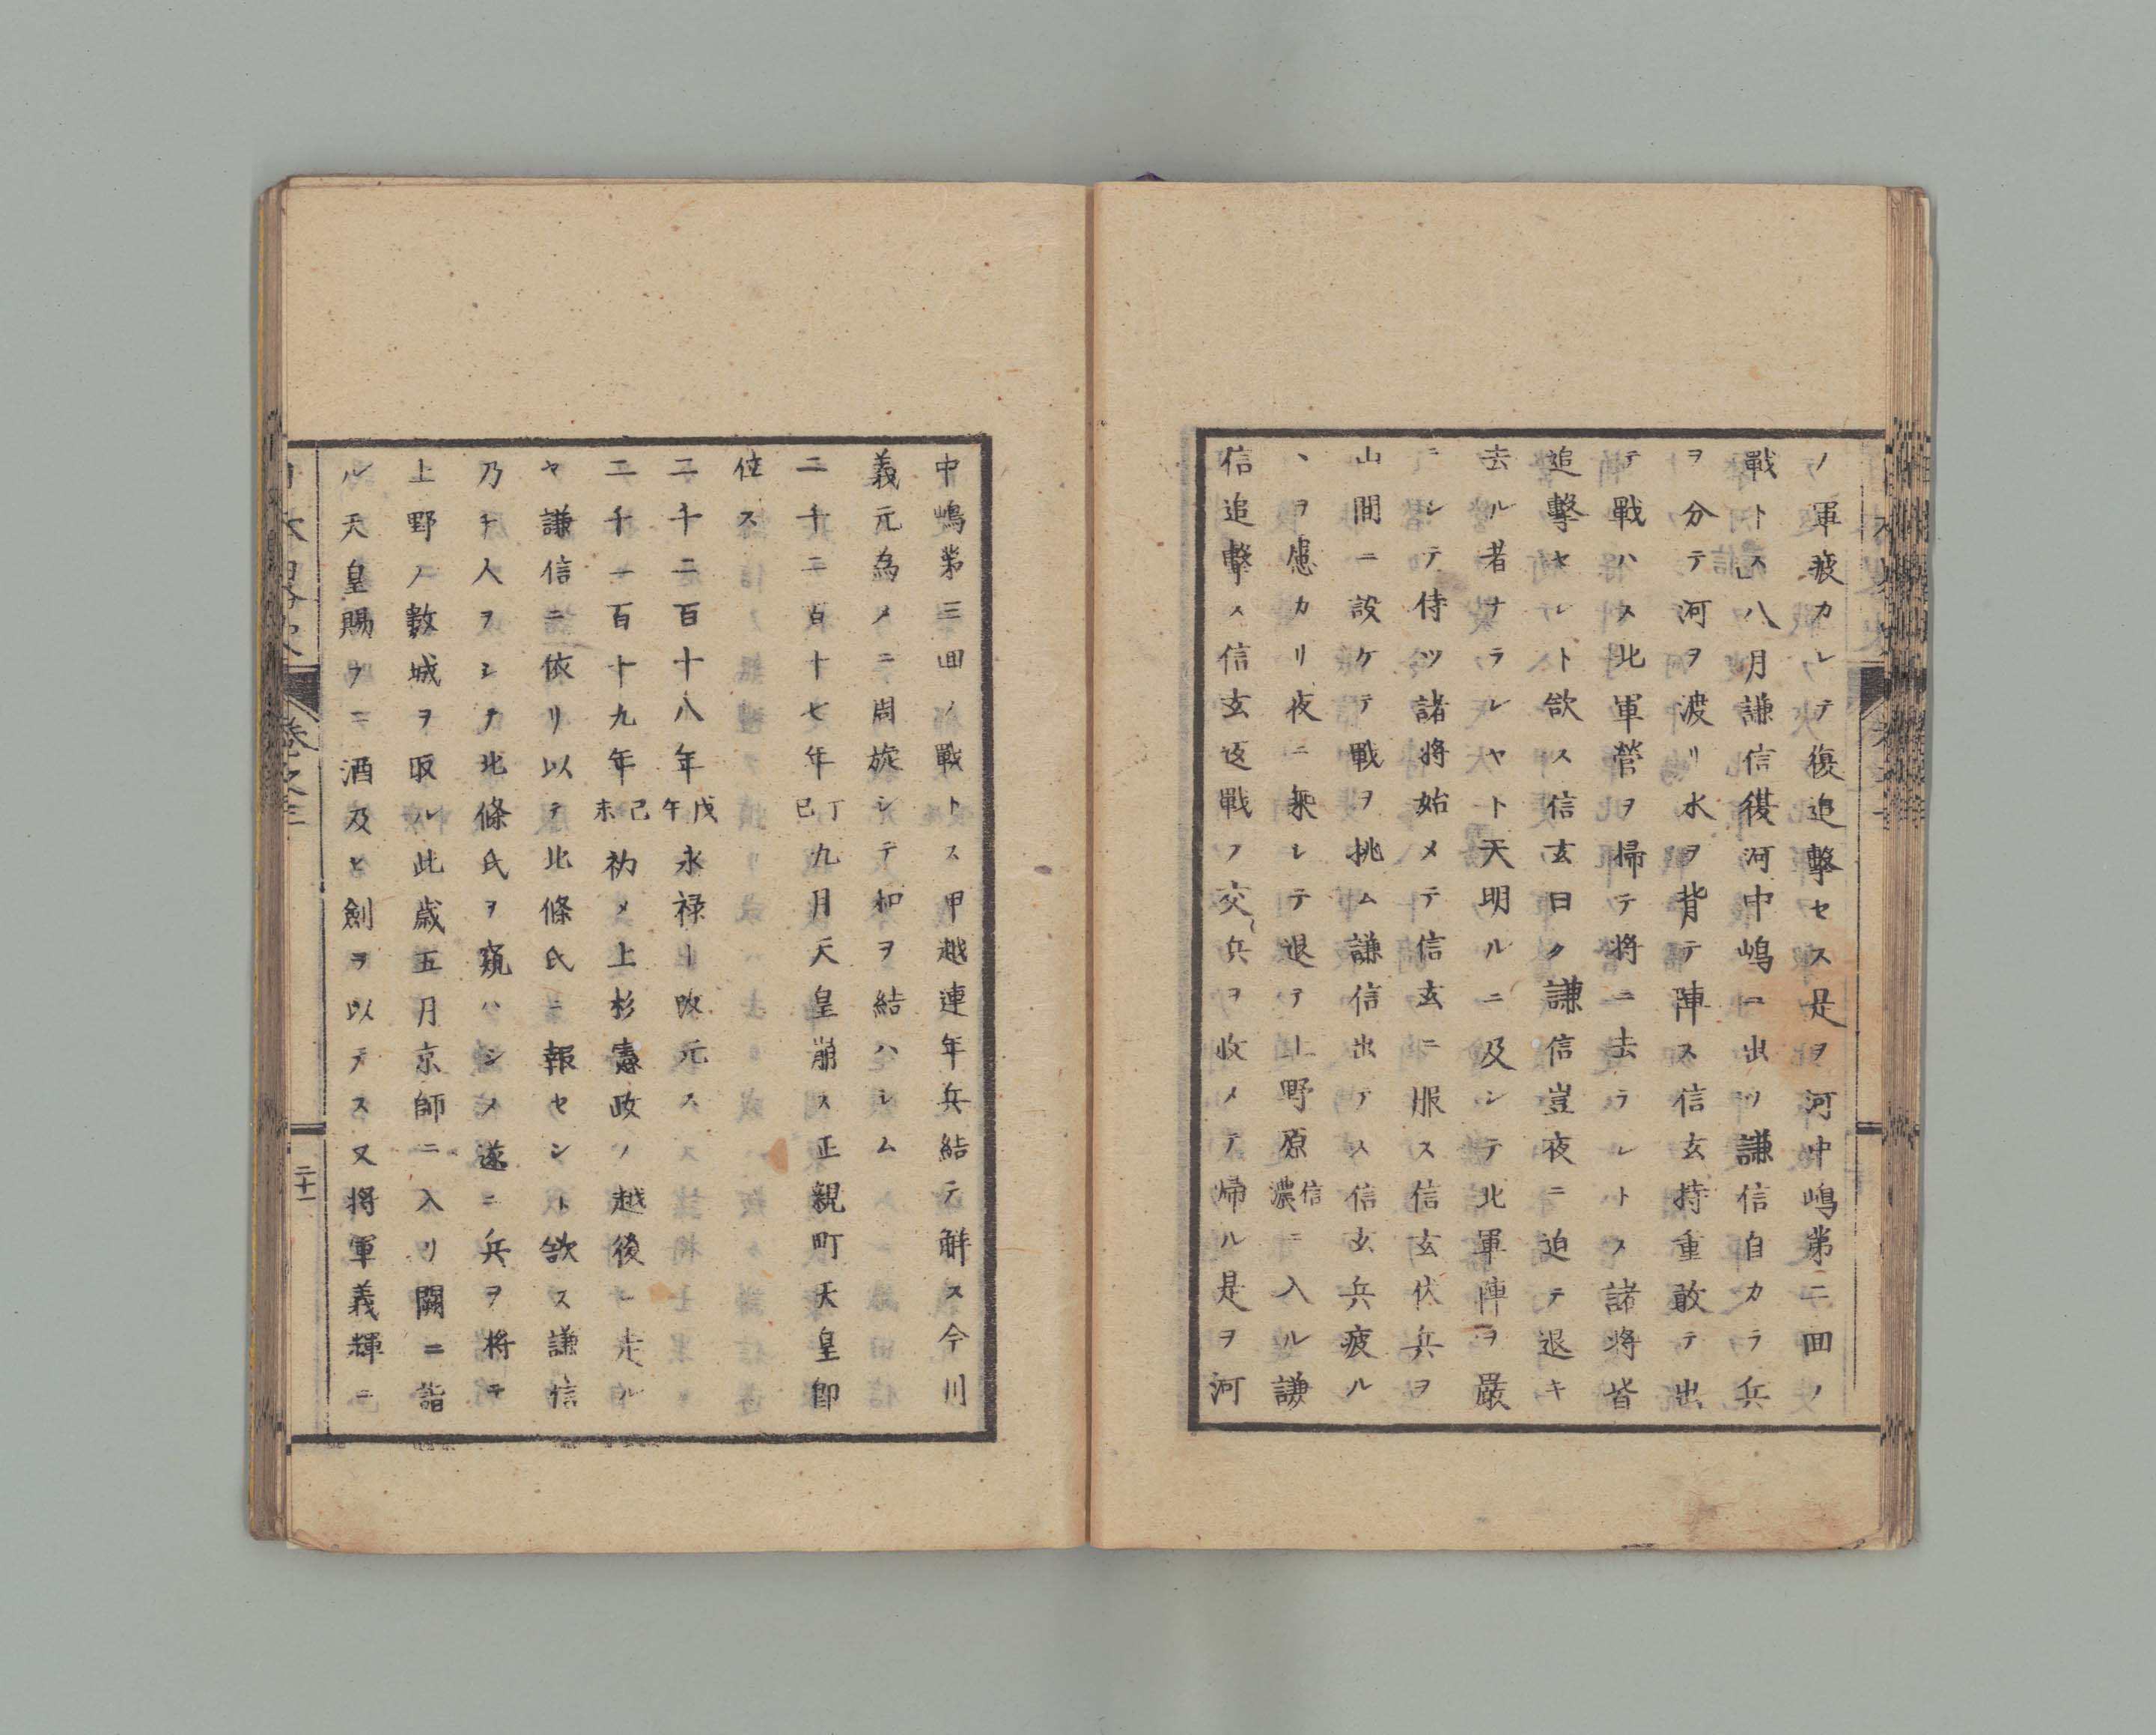 ノ軍疲カレテ復追擊セス是ヲ河中嶋第二回ノ
戰トス八月謙信復河中嶋ニ出ツ謙信自カラ兵
ヲ分テ河ヲ渡リ水ヲ背テ陣ス信玄持重敢テ出
テ戰ハス北軍營ヲ掃テ將ニ去ラントス諸將皆
追擊セント欲ス信玄曰ク謙信豈夜ニ迫テ退キ
去ル者ナランヤト天明ルニ及シテ北軍陣ヲ嚴
ニシテ侍ツ諸將始メテ信玄ニ服ス信玄伏兵ヲ
山間ニ設ケテ戰ヲ挑ム謙信出テス信玄兵疲ル
ヽヲ慮カリ夜ニ乘シテ退テ上野原信濃ニ入ル謙
信追擊ス信玄返戰フ交〻兵ヲ收メテ帰ル是ヲ河
中嶋第三回ノ戰トス甲越連年兵結テ解ス今川
義元為メニ周旋シテ和ヲ結ハシム
二千二百十七年丁巳九月天皇崩ス正親町天皇即
位ス
二千二百十八年戊午永禄ト改元ス
二千二百十九年己未初メ上杉憲政ノ越後ニ走ル
ヤ謙信ニ依リ以テ北條氏ニ報セント欲ス謙信
乃チ人ヲシテ北條氏ヲ窺ハシメ遂ニ兵ヲ將テ
上野ノ數城ヲ取ル此歳五月京師ニ入リ闕ニ詣
ル天皇賜フニ酒及ヒ劍ヲ以テス又將軍義輝ニ
二十一